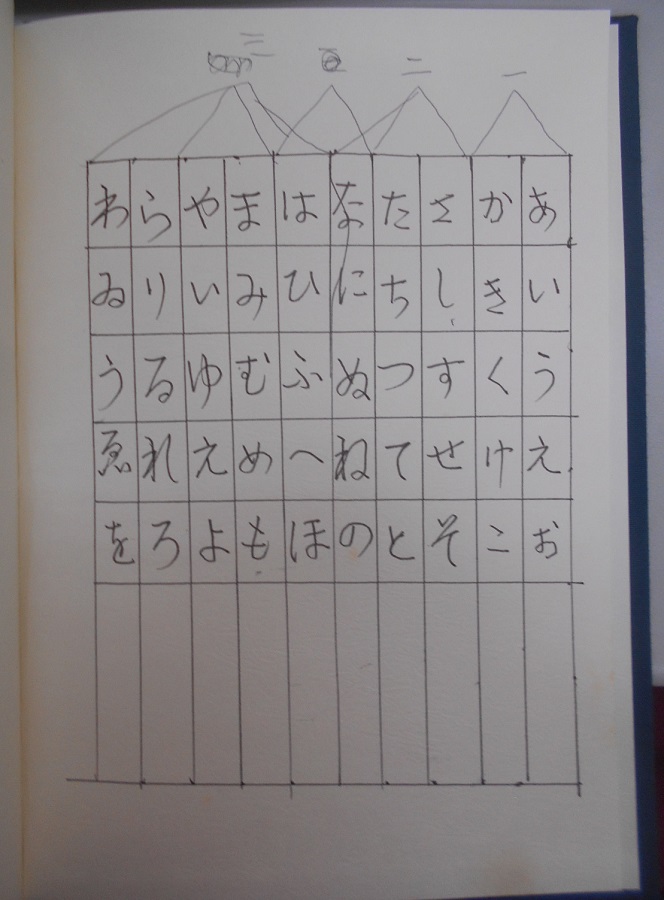 一
二
三
あいうえお
かきくけこ
さしすせそ
たちつてと
なにぬねの
はひふへほ
まみむめも
やいゆえよ
らりるれろ
わゐうゑを